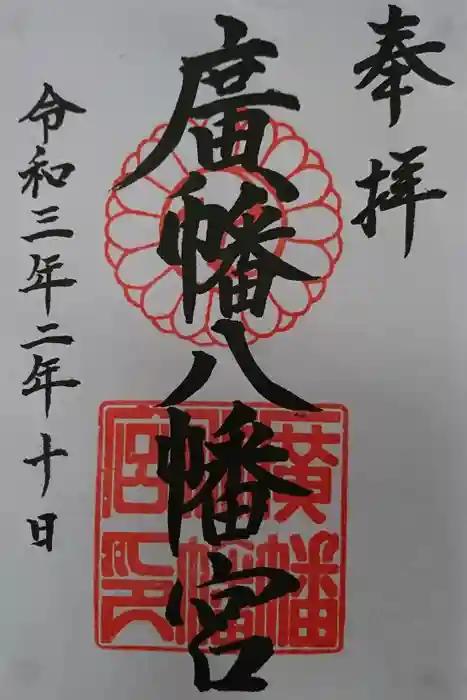 奉拝
廣幡八幡宮
令和三年二年十日
廣幡
八幡
宮印